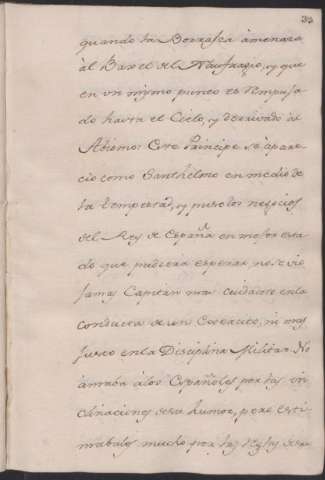 35
quando la Borrasca àmenaza
àl Baxel del Naufragio, y que
en un mismo punto es rempuja
do hasta el Cielo, y derrivado al
Abismo: Este Principe se àpare
cio como Santhelmo en medio de
la tempestad, y puso los negocios
del Rey de España en mejor esta
do que pudiera esperar, no se vio
jamas Capitan mas cuidadoso en la
conducta de un Exercito, ni mas
justo en la Disciplina Militar. No
àmaba à los Españoles por las in
clinaciones de su humor, pero esti
mabalos mucho por las